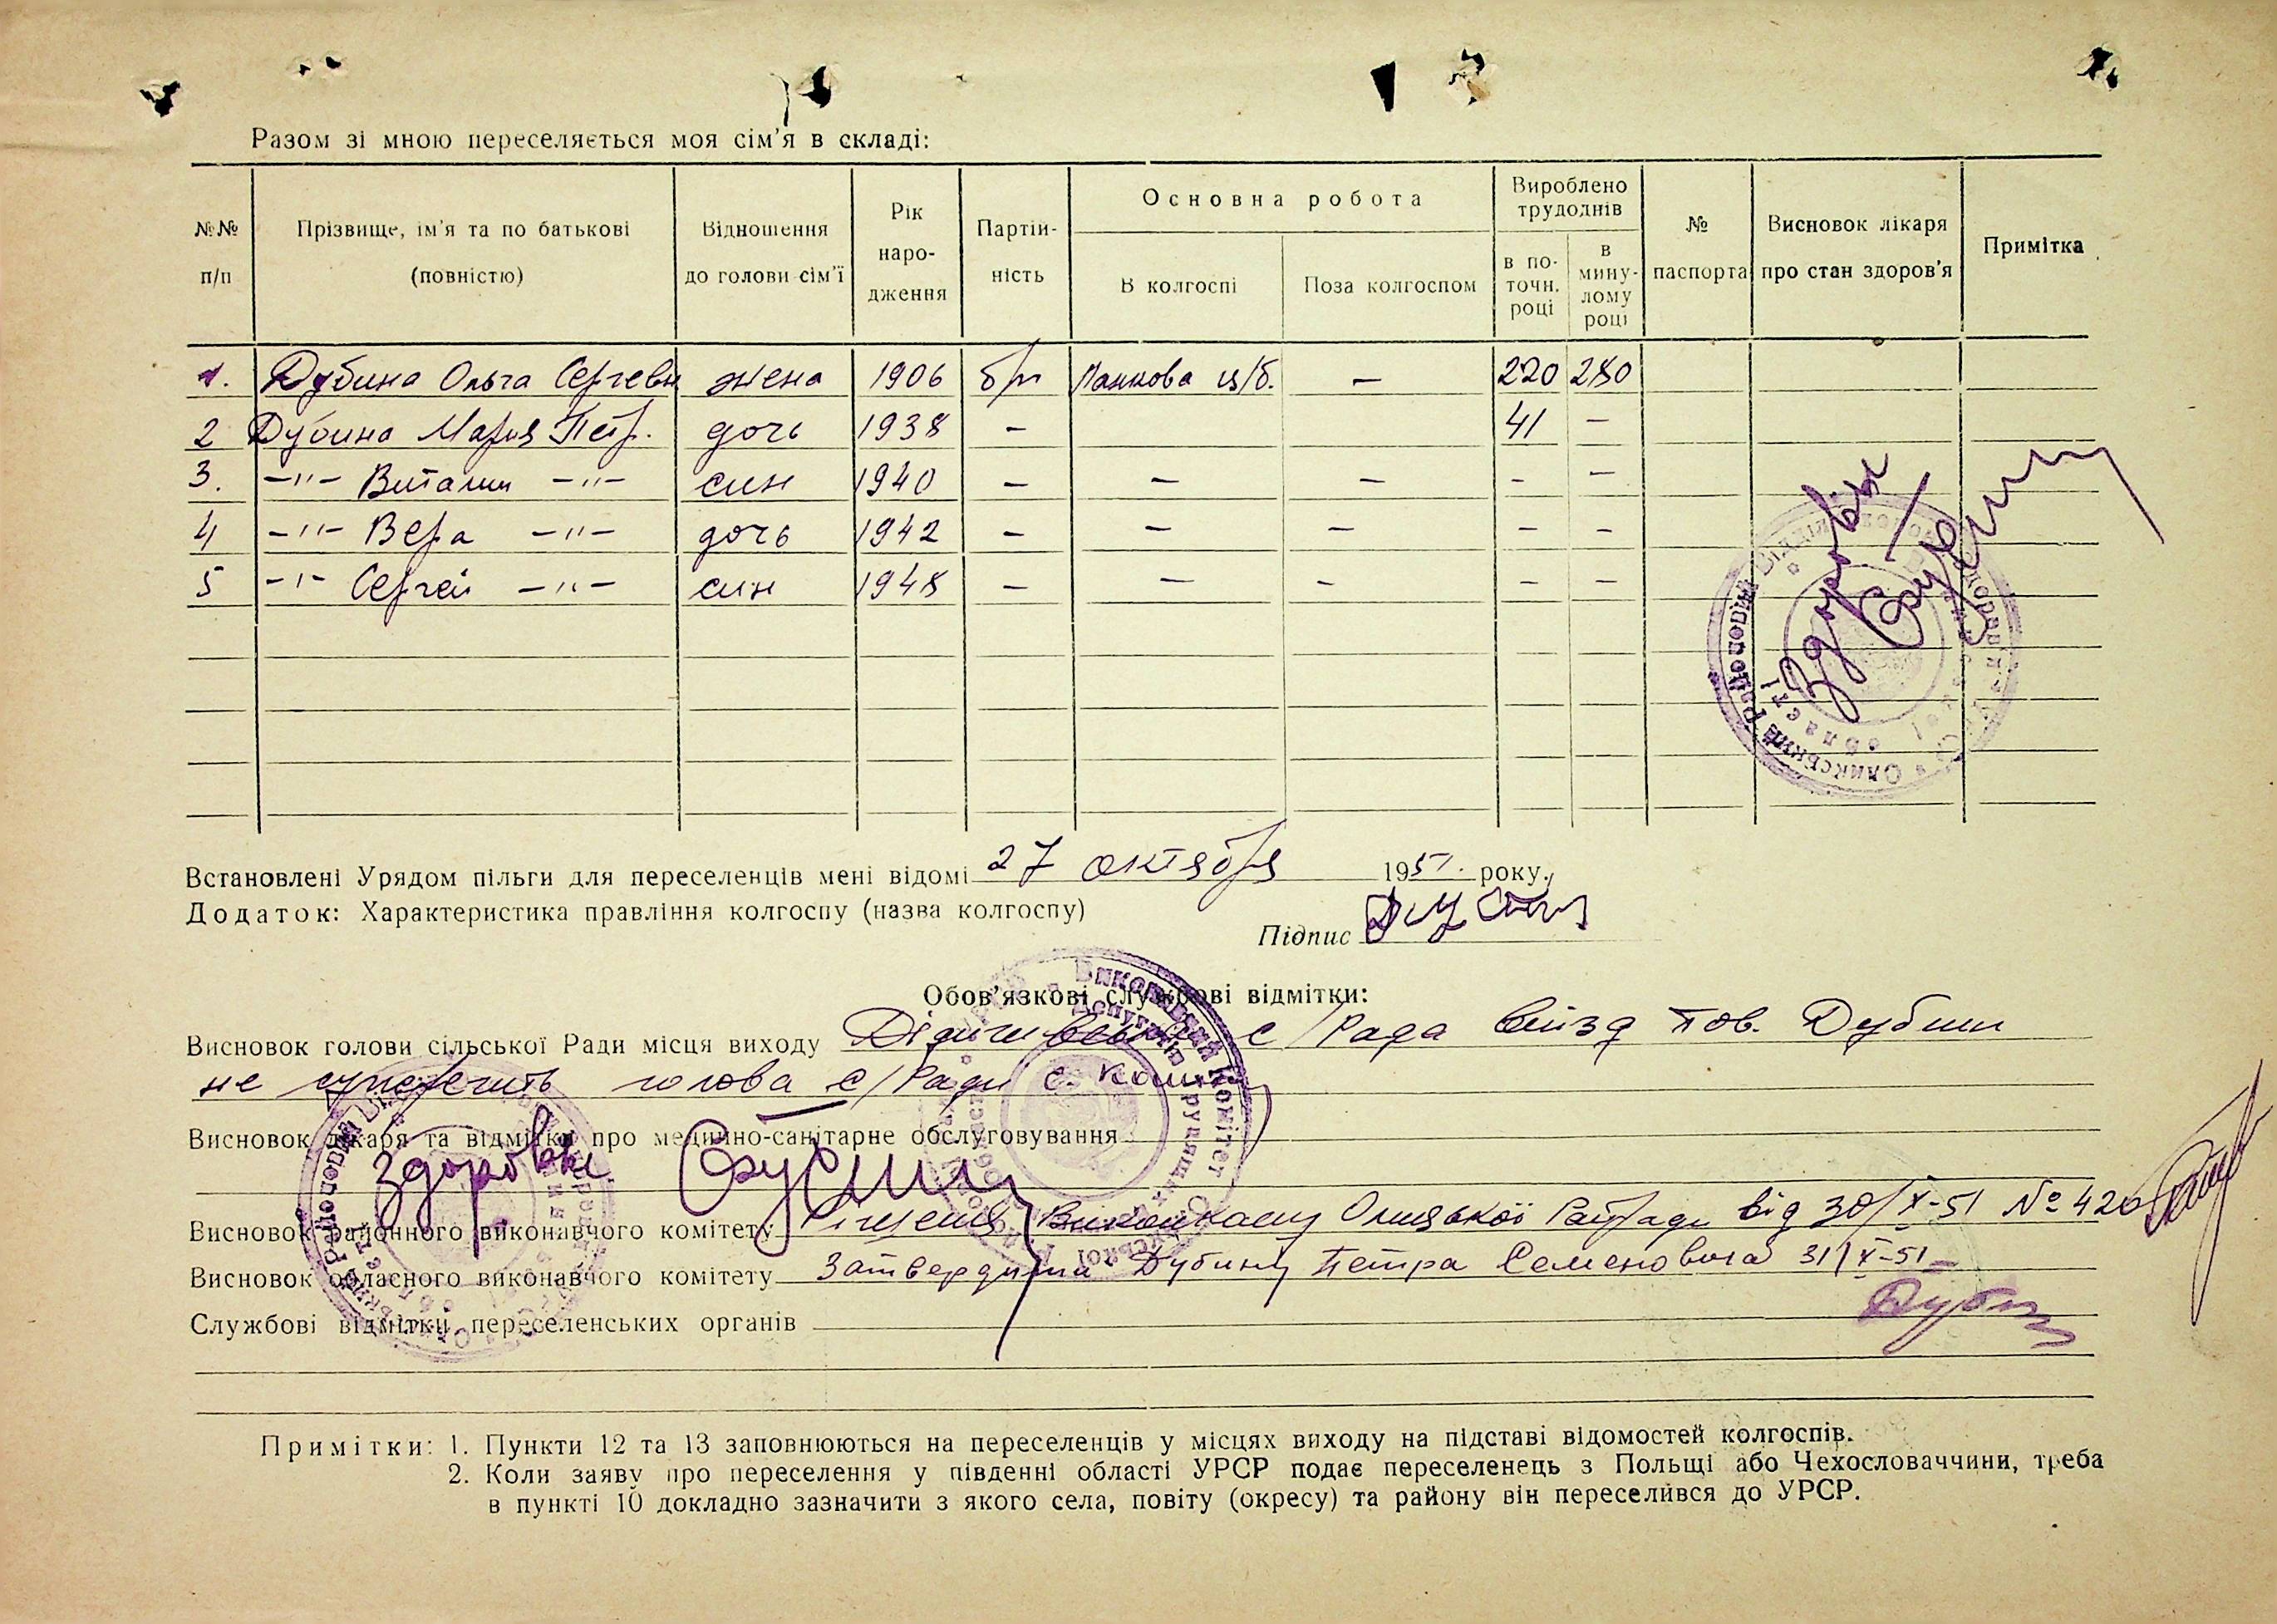 Разом зі мною переселяється моя сім'я в складі:
№№ п/п
Прізвище, ім'я та по батькові (повністю)
Відношення до голови сім'ї
Рік народження
Партійність
Основна робота
В колгоспі
Поза колгоспом
Вироблено трудоднів
в поточн. році
в минулому році
№ паспорта
Висновок лікаря про стан здоров'я
Примітка
1. Дубина Ольга Сергевн жена 1906 б/п Ланкова ц/б. — 220 280
2 Дубина Мария Петр. дочь 1938 — 41 —
3. —"— Виталий —"— син 1940 — — — - —
4 —"— Вера —"— дочь 1942 — — — — —
5 —"— Сергей —"— син 1948 — — - — —
Здоровы
Встановлені Урядом пільги для переселенців мені відомі 27 октября 1951. року.
Додаток: Характеристика правління колгоспу (назва колгоспу)
Підпис
Обов'язкові службові відмітки:
Висновок голови сільської Ради місця виходу с/Рада виїзд тов. Дубини
не голова с/Ради
Висновок лікаря та відмітки про медично-санітарне обслуговування
Здоровы
Висновок районного виконавчого комітету Рішення Виконкому Олицької Райради від 30/X-51 № 420
Висновок обласного виконавчого комітету Затвердити Дубину Петра Семеновича 31/X-51
Службові відмітки переселенських органів
Примітки: 1. Пункти 12 та 13 заповнюються на переселенців у місцях виходу на підставі відомостей колгоспів.
2. Коли заяву про переселення у південні області УРСР подає переселенець з Польщі або Чехословаччини, треба
в пункті 10 докладно зазначити з якого села, повіту (окресу) та району він переселився до УРСР.